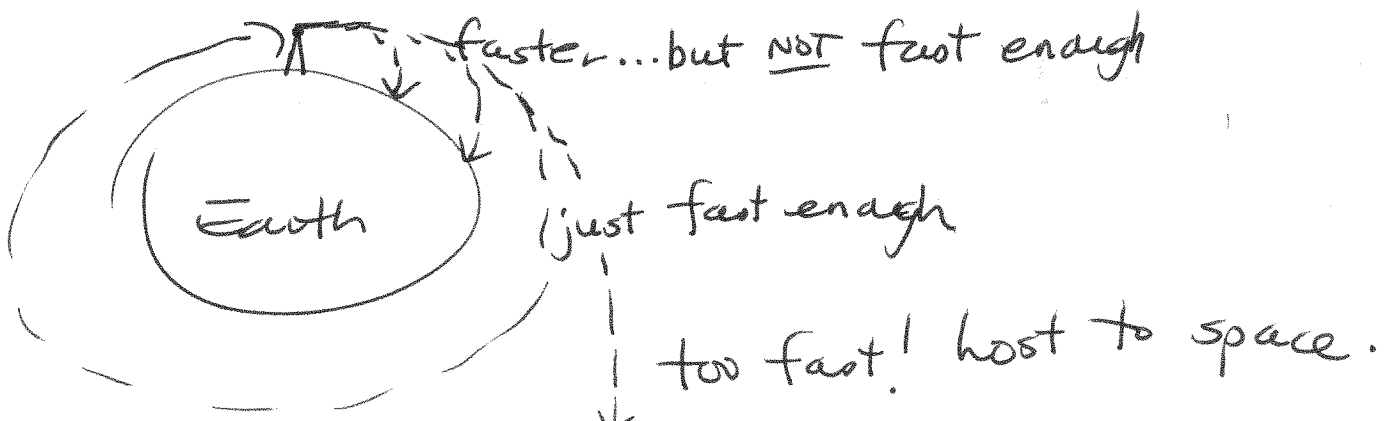 faster...but NOT fast enough
Earth
just fast enough
too fast! Lost to space.